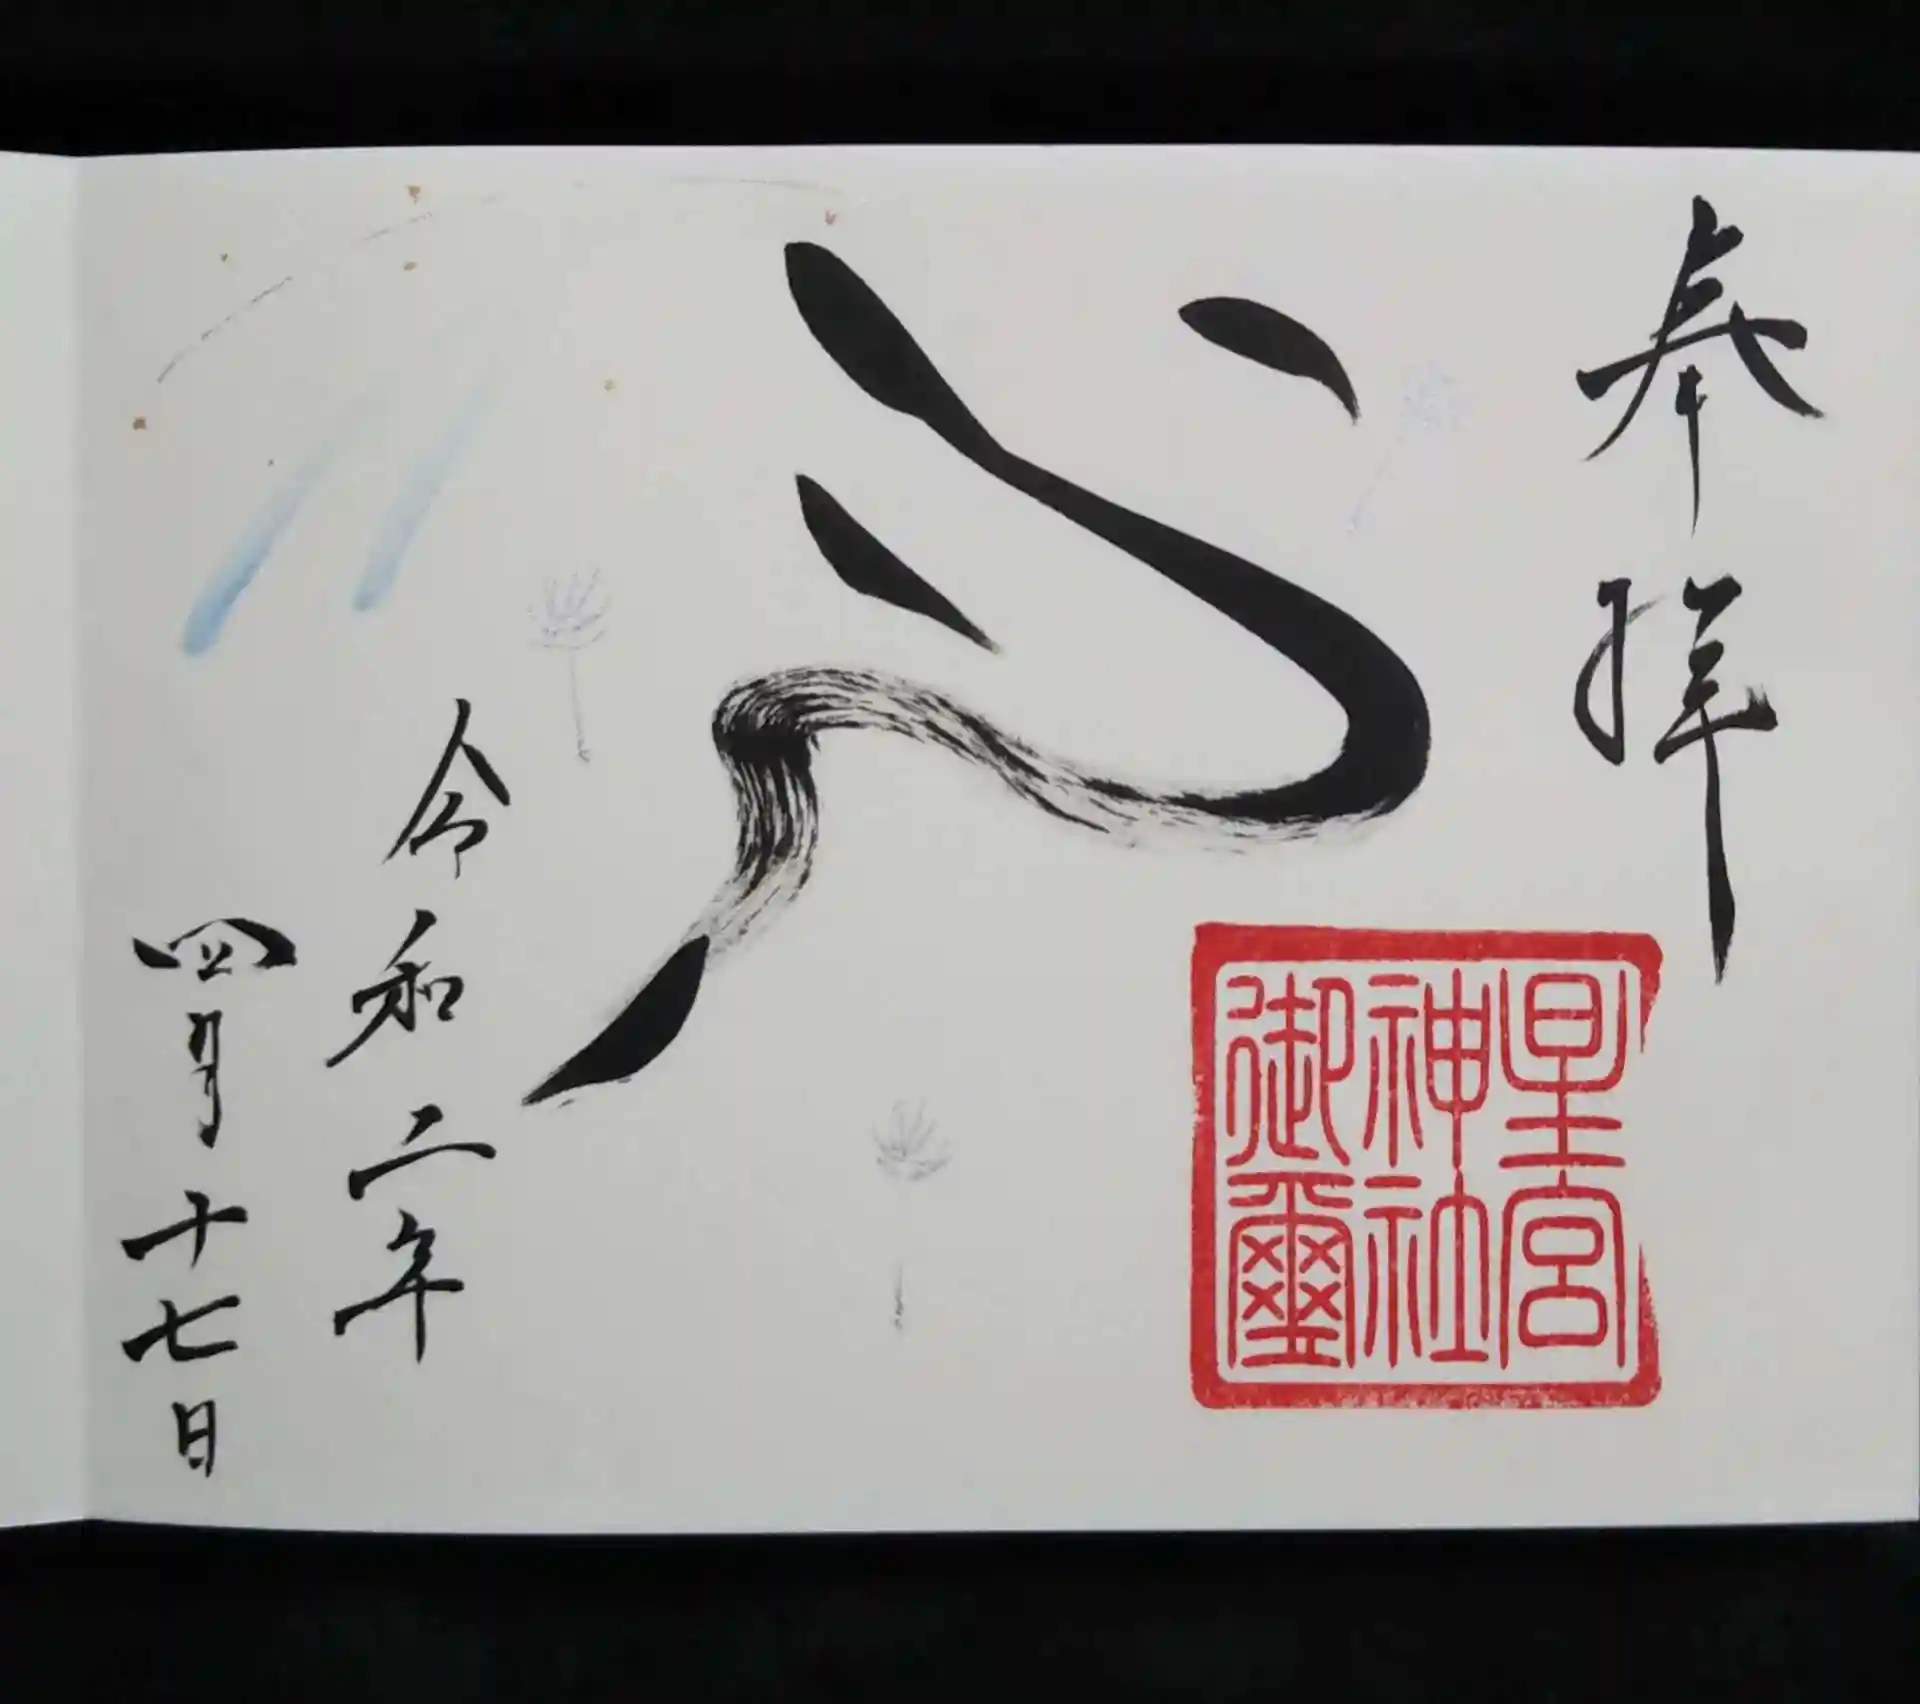 奉拝
心
星宮
神社
御璽
令和二年
四月十七日